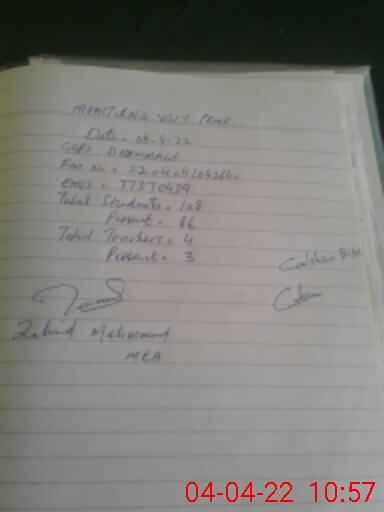 MONITORING VISIT PROOF
Date = 04-4-22
GGPS DHAMMALI
EMIS = 37370439
Total Students = 108
Present = 86
Total Teachers = 4
Present = 3
Gulshan Bibi
Zahid Mahmood
MEA
04-04-22 10:57